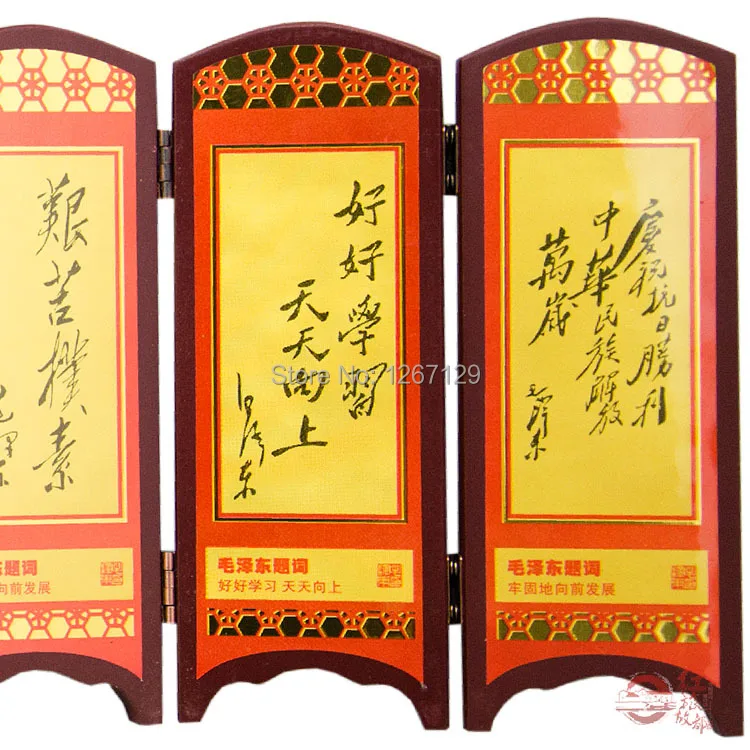 艱苦樸素
东题词
向前发展
好好學習
天天向上
毛澤东
毛泽东题词
好好学习 天天向上
慶祝抗日勝利
中華民族解放
萬歲
毛澤东
毛泽东题词
牢固地向前发展
Store No: 1267129